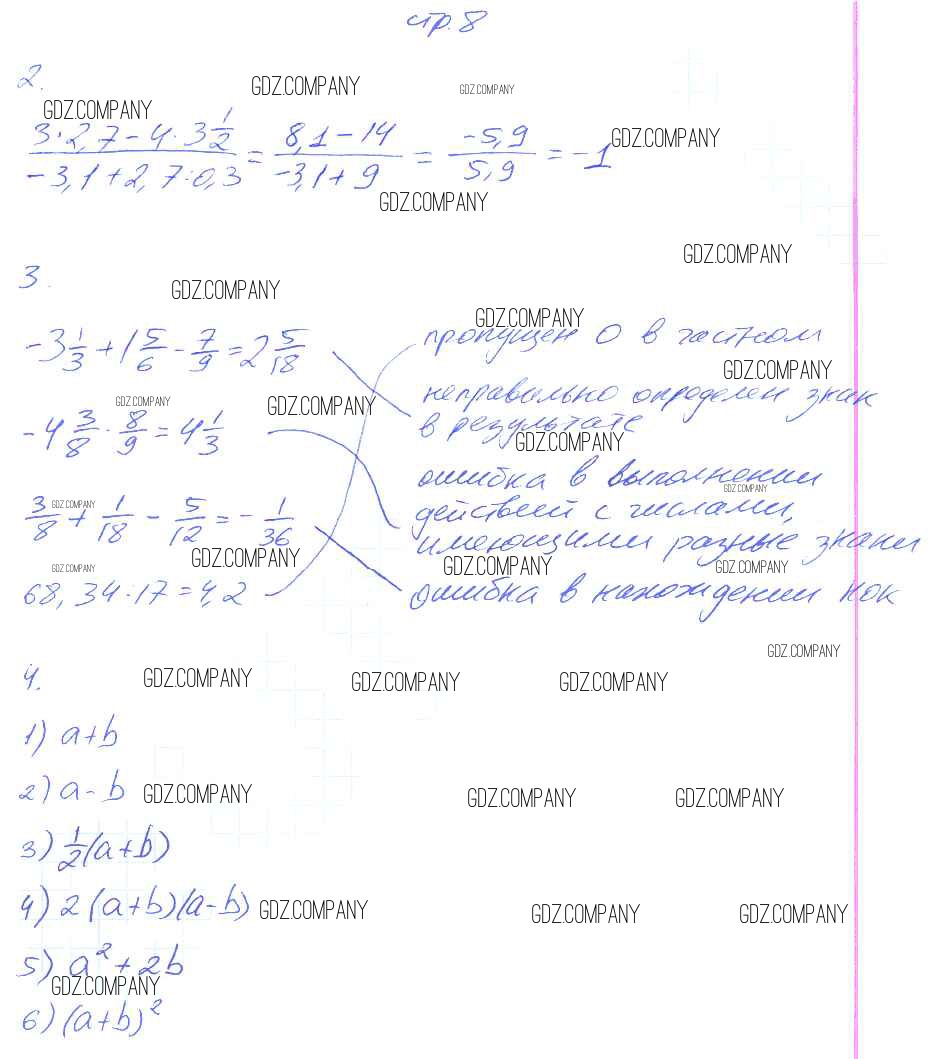 стр. 8
2.
GDZ.COMPANY GDZ.COMPANY GDZ.COMPANY
(3·2,7 - 4·3 1/2)/(-3,1 + 2,7:0,3) = (8,1 - 14)/(-3,1 + 9) = (-5,9)/(5,9) = -1 GDZ.COMPANY
GDZ.COMPANY
GDZ.COMPANY
3.
GDZ.COMPANY
GDZ.COMPANY
-3 1/3 + 1 5/6 - 7/9 = 2 5/18
пропущен 0 в частном
GDZ.COMPANY
GDZ.COMPANY GDZ.COMPANY
неправильно определен знак
в результате
-4 3/8 · 8/9 = 4 1/3
GDZ.COMPANY
ошибка в выполнении
GDZ.COMPANY
действий с числами,
имеющими разные знаки
GDZ.COMPANY
3/8 + 1/18 - 5/12 = - 1/36
GDZ.COMPANY
GDZ.COMPANY GDZ.COMPANY GDZ.COMPANY
68,34:17 = 4,2
ошибка в нахождении НОК
GDZ.COMPANY
4.
GDZ.COMPANY GDZ.COMPANY GDZ.COMPANY
1) a+b
2) a-b
GDZ.COMPANY GDZ.COMPANY GDZ.COMPANY
3) 1/2(a+b)
4) 2(a+b)(a-b)
GDZ.COMPANY GDZ.COMPANY GDZ.COMPANY
5) a² + 2b
GDZ.COMPANY
6) (a+b)²